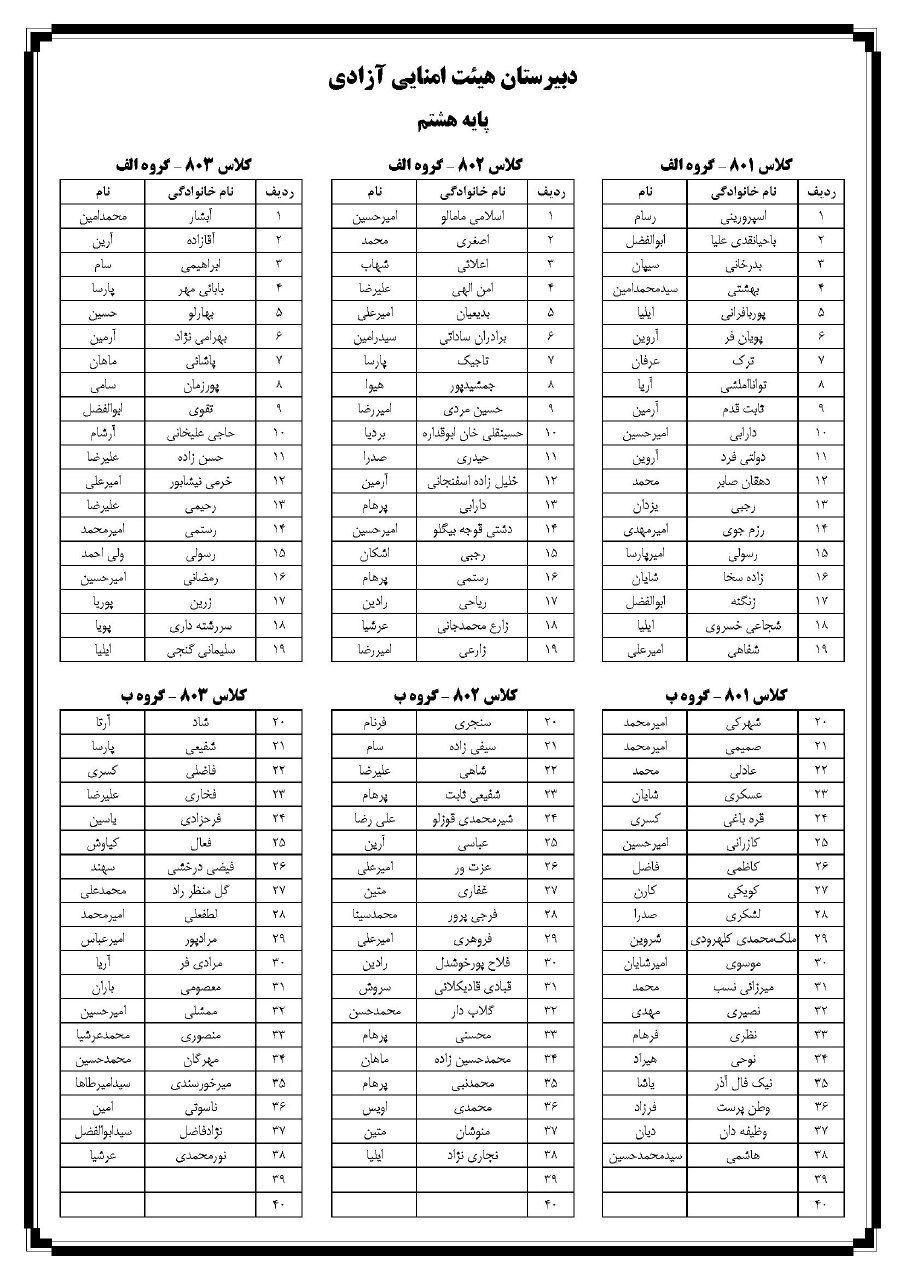 دبیرستان هیئت امنایی آزادی
پایه هشتم
کلاس ۸۰۱ - گروه الف
ردیف نام خانوادگی نام
۱ اسپرورینی رسام
۲ باحیانقدی علیا ابوالفضل
۳ بدرخانی سیهان
۴ بهشتی سیدمحمدامین
۵ پوربافرانی ایلیا
۶ پویان فر آروین
۷ ترک عرفان
۸ توانااملشی آریا
۹ ثابت قدم آرمین
۱۰ دارابی امیرحسین
۱۱ دولتی فرد آروین
۱۲ دهقان صابر محمد
۱۳ رجبی یزدان
۱۴ رزم جوی امیرمهدی
۱۵ رسولی امیرپارسا
۱۶ زاده سخا شایان
۱۷ زنگنه ابوالفضل
۱۸ شجاعی خسروی ایلیا
۱۹ شفاهی امیرعلی
کلاس ۸۰۲ - گروه الف
ردیف نام خانوادگی نام
۱ اسلامی مامالو امیرحسین
۲ اصغری محمد
۳ اعلائی شهاب
۴ امن الهی علیرضا
۵ بدیعیان امیرعلی
۶ برادران ساداتی سیدرامین
۷ تاجیک پارسا
۸ جمشیدپور هیوا
۹ حسین مردی امیررضا
۱۰ حسینقلی خان ابوقداره بردیا
۱۱ حیدری صدرا
۱۲ خلیل زاده اسفنجانی آرمین
۱۳ دارابی پرهام
۱۴ دشتی قوجه بیگلو امیرحسین
۱۵ رجبی اشکان
۱۶ رستمی پرهام
۱۷ ریاحی رادین
۱۸ زارع محمدجانی عرشیا
۱۹ زارعی امیررضا
کلاس ۸۰۳ - گروه الف
ردیف نام خانوادگی نام
۱ آبشار محمدامین
۲ آقازاده آرین
۳ ابراهیمی سام
۴ بابائی مهر پارسا
۵ بهارلو حسین
۶ بهرامی نژاد آرمین
۷ پاشائی ماهان
۸ پورزمان سامی
۹ تقوی ابوالفضل
۱۰ حاجی علیخانی آرشام
۱۱ حسن زاده علیرضا
۱۲ خرمی نیشابور امیرعلی
۱۳ رحیمی علیرضا
۱۴ رستمی امیرمحمد
۱۵ رسولی ولی احمد
۱۶ رمضانی امیرحسین
۱۷ زرین پوریا
۱۸ سررشته داری پویا
۱۹ سلیمانی گنجی ایلیا
کلاس ۸۰۱ - گروه ب
۲۰ شهرکی امیرمحمد
۲۱ صمیمی امیرمحمد
۲۲ عادلی محمد
۲۳ عسکری شایان
۲۴ قره باغی کسری
۲۵ کازرانی امیرحسین
۲۶ کاظمی فاضل
۲۷ کوبکی کارن
۲۸ لشکری صدرا
۲۹ ملک‌محمدی کلهرودی شروین
۳۰ موسوی امیرشایان
۳۱ میرزائی نسب محمد
۳۲ نصیری مهدی
۳۳ نظری فرهام
۳۴ نوحی هیراد
۳۵ نیک فال آذر یاشا
۳۶ وطن پرست فرزاد
۳۷ وظیفه دان دیان
۳۸ هاشمی سیدمحمدحسین
۳۹
۴۰
کلاس ۸۰۲ - گروه ب
۲۰ سنجری فرنام
۲۱ سیفی زاده سام
۲۲ شاهی علیرضا
۲۳ شفیعی ثابت پرهام
۲۴ شیرمحمدی قوزلو علی رضا
۲۵ عباسی آرین
۲۶ عزت ور امیرعلی
۲۷ غفاری متین
۲۸ فرجی پرور محمدسینا
۲۹ فروهری امیرعلی
۳۰ فلاح پورخوشدل رادین
۳۱ قبادی قادیکلائی سروش
۳۲ گلاب دار محمدحسن
۳۳ محسنی پرهام
۳۴ محمدحسین زاده ماهان
۳۵ محمدنبی پرهام
۳۶ محمدی اویس
۳۷ منوشان متین
۳۸ نجاری نژاد ایلیا
۳۹
۴۰
کلاس ۸۰۳ - گروه ب
۲۰ شاد آرتا
۲۱ شفیعی پارسا
۲۲ فاضلی کسری
۲۳ فخاری علیرضا
۲۴ فرحزادی یاسین
۲۵ فعال کیاوش
۲۶ فیضی درخشی سهند
۲۷ گل منظر راد محمدعلی
۲۸ لطفعلی امیرمحمد
۲۹ مرادپور امیرعباس
۳۰ مرادی فر آریا
۳۱ معصومی باران
۳۲ ممشلی امیرحسین
۳۳ منصوری محمدعرشیا
۳۴ مهرگان محمدحسین
۳۵ میرخورسندی سیدامیرطاها
۳۶ ناسوتی امین
۳۷ نژادفاضل سیدابوالفضل
۳۸ نورمحمدی عرشیا
۳۹
۴۰